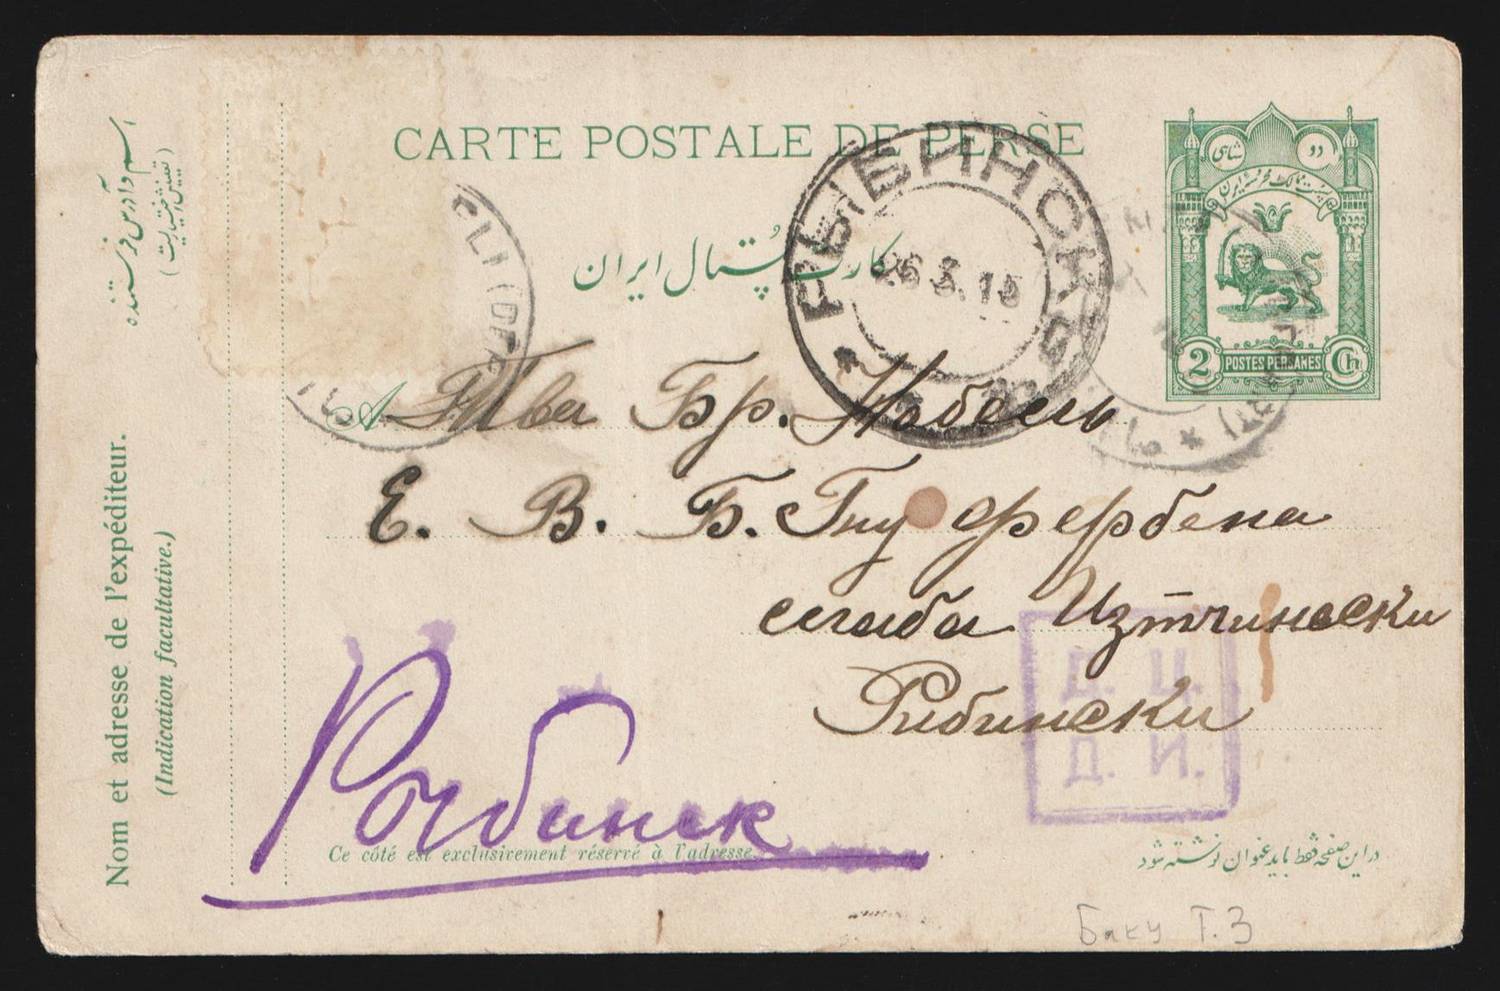 CARTE POSTALE DE PERSE
کارت پستال ایران
دو شاهی
پست ممالک محروسه ایران
2 POSTES PERSANES Ch
РЫБИНСКЪ
26 3. 15
ELI (DÉ
Т-ва Бр. Нобель
Е. В. Б. Гну Ферфена
Рибински
Рыбинск
Д. Ц.
Д. И.
Ce côté est exclusivement réservé à l'adresse.
در این صفحه فقط باید عنوان نوشته شود
Nom et adresse de l'expéditeur.
(Indication facultative.)
اسم و آدرس فرستنده
Баку Т.З